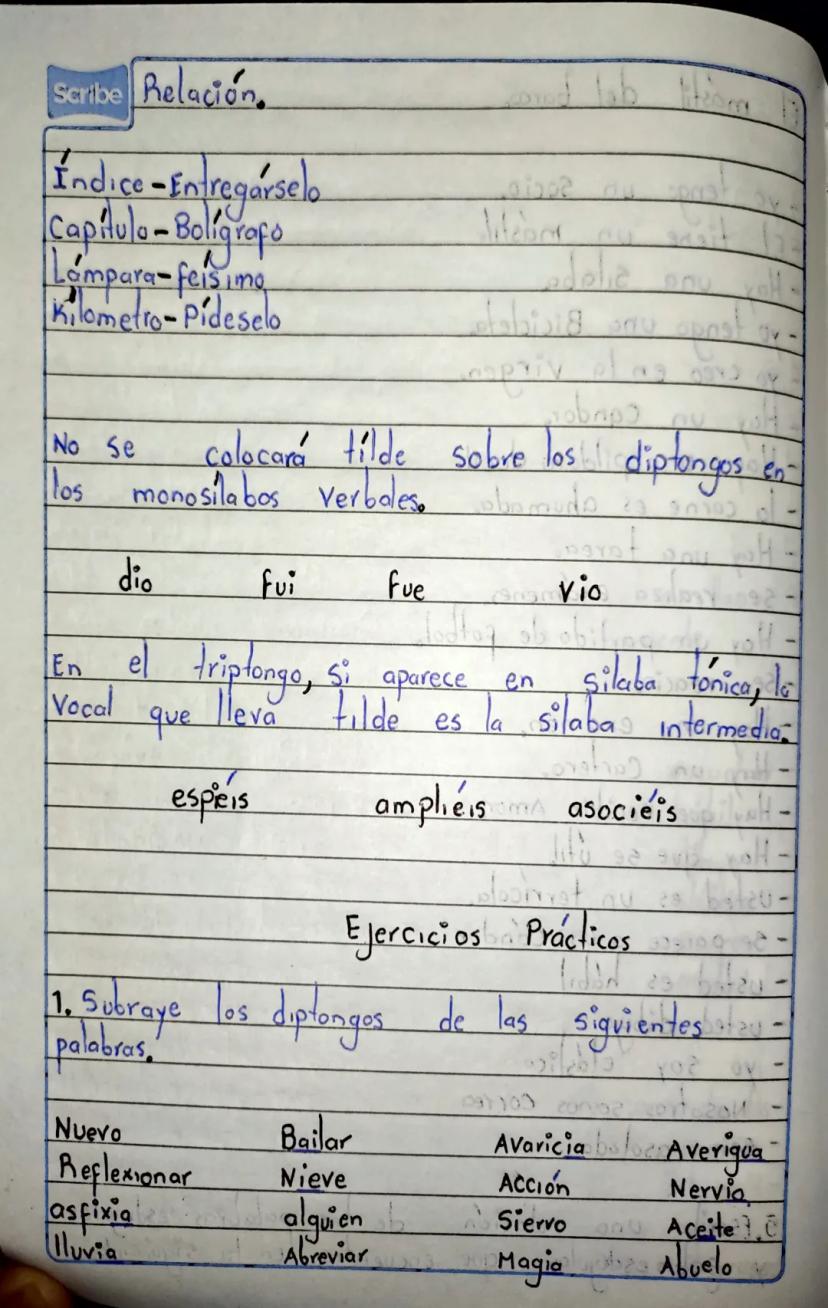 Scribe Relación.
Índice - Entregárselo
Capítulo - Bolígrafo
Lámpara - feísimo
Kílometro - Pídeselo
No se colocará tílde sobre los diptongos en
los monosílabos verbales.
dio fui fue vio
En el triptongo, si aparece en sílaba tónica, la
Vocal que lleva tilde es la sílaba intermedia.
espiéis ampliéis asociéis
Ejercicios Prácticos
1. Subraye los diptongos de las siguientes
palabras.
Nuevo Bailar Avaricia Averigua
Reflexionar Nieve Acción Nervio
asfixia alguien Siervo Aceite
lluvia Abreviar Magia Abuelo